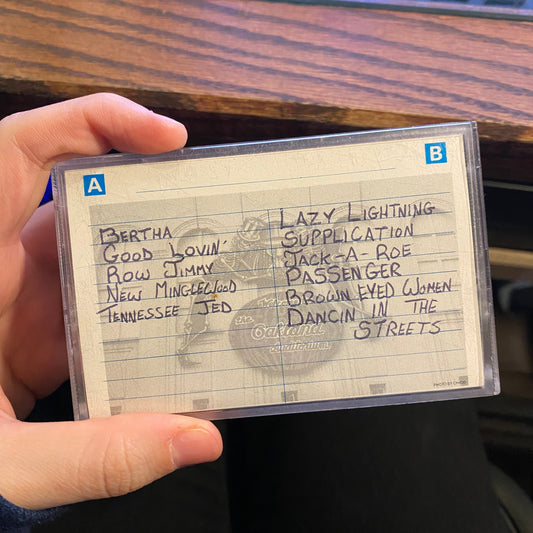 A
B
BERTHA
GOOD LOVIN'
ROW JIMMY
NEW MINGLEWOOD
TENNESSEE JED
LAZY LIGHTNING
SUPPLICATION
JACK-A-ROE
PASSENGER
BROWN EYED WOMEN
DANCIN IN THE
STREETS
the
Oakland
auditorium